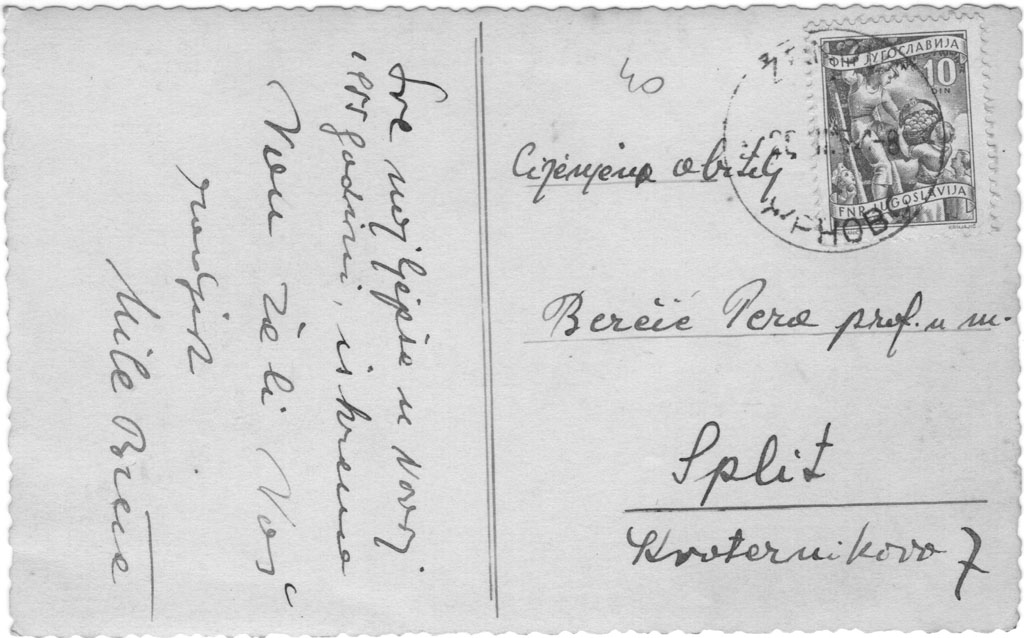 Sve najljepše u Novoj
1955 godini, iskreno
Vam želi Vaš
rođak
Mile
40
Cijenjena obitelj
Berčić Pera prof. u m.
Split
Kvaternikova 7
ФНР ЈУГОСЛАВИЈА
10
DIN
FNR JUGOSLAVIJA